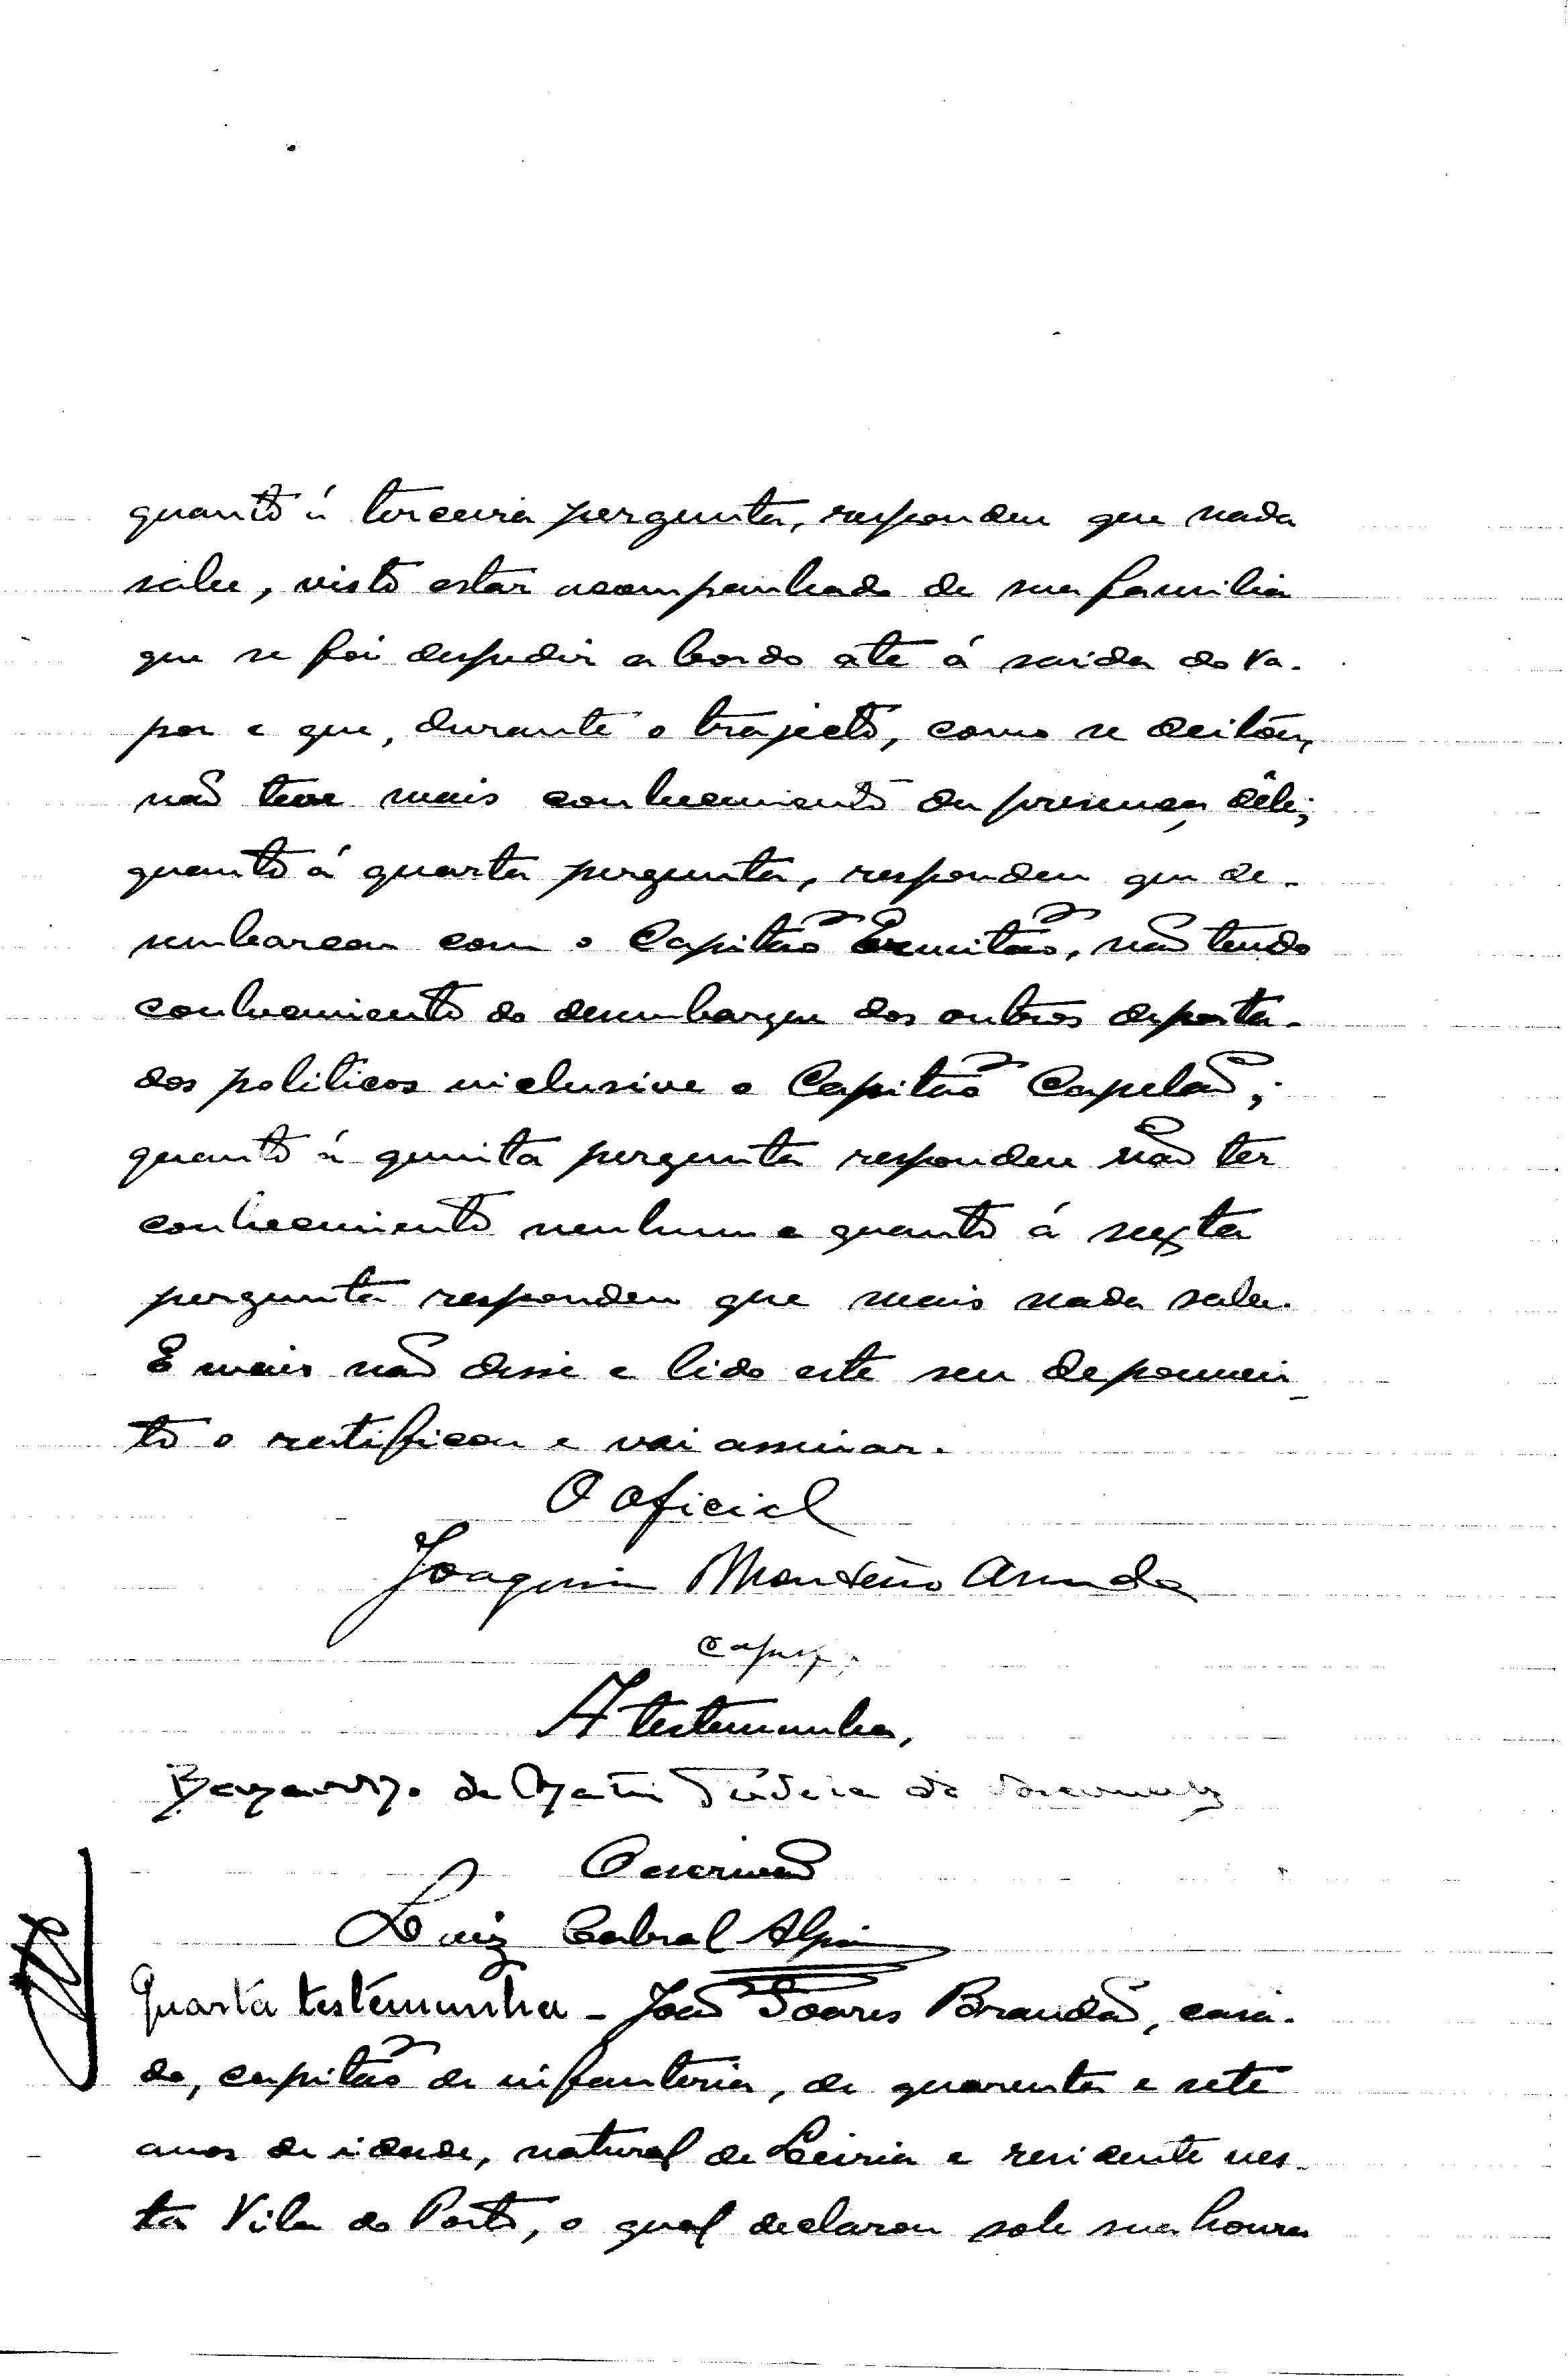 quanto á terceira pergunta, respondeu que nada
sabe, visto estar acompanhado de sua familia
que se foi despedir a bordo até á saida do va-
por e que, durante o trajecto, como se deitou,
não teve mais conhecimento da presença dêle;
quanto á quarta pergunta, respondeu que de-
sembarcou com o Capitão Ermitão, não tendo
conhecimento do desembarque dos outros deporta-
dos politicos inclusive o Capitão Capelão;
quanto á quinta pergunta respondeu não ter
conhecimento nenhum e quanto á sexta
pergunta respondeu que mais nada sabe.
E mais não disse e lido este seu depoimen-
to o ratificou e vai assinar.
O oficial
Joaquim Monteiro Arruda
A testemunha,
O escrivão
Luiz Cabral
Quarta testemunha - João Soares Brandão, casa-
do, capitão de infanteria, de quarenta e sete
anos de idade, natural de Leiria e residente nes-
ta Vila do Porto, o qual declarou sob sua honra